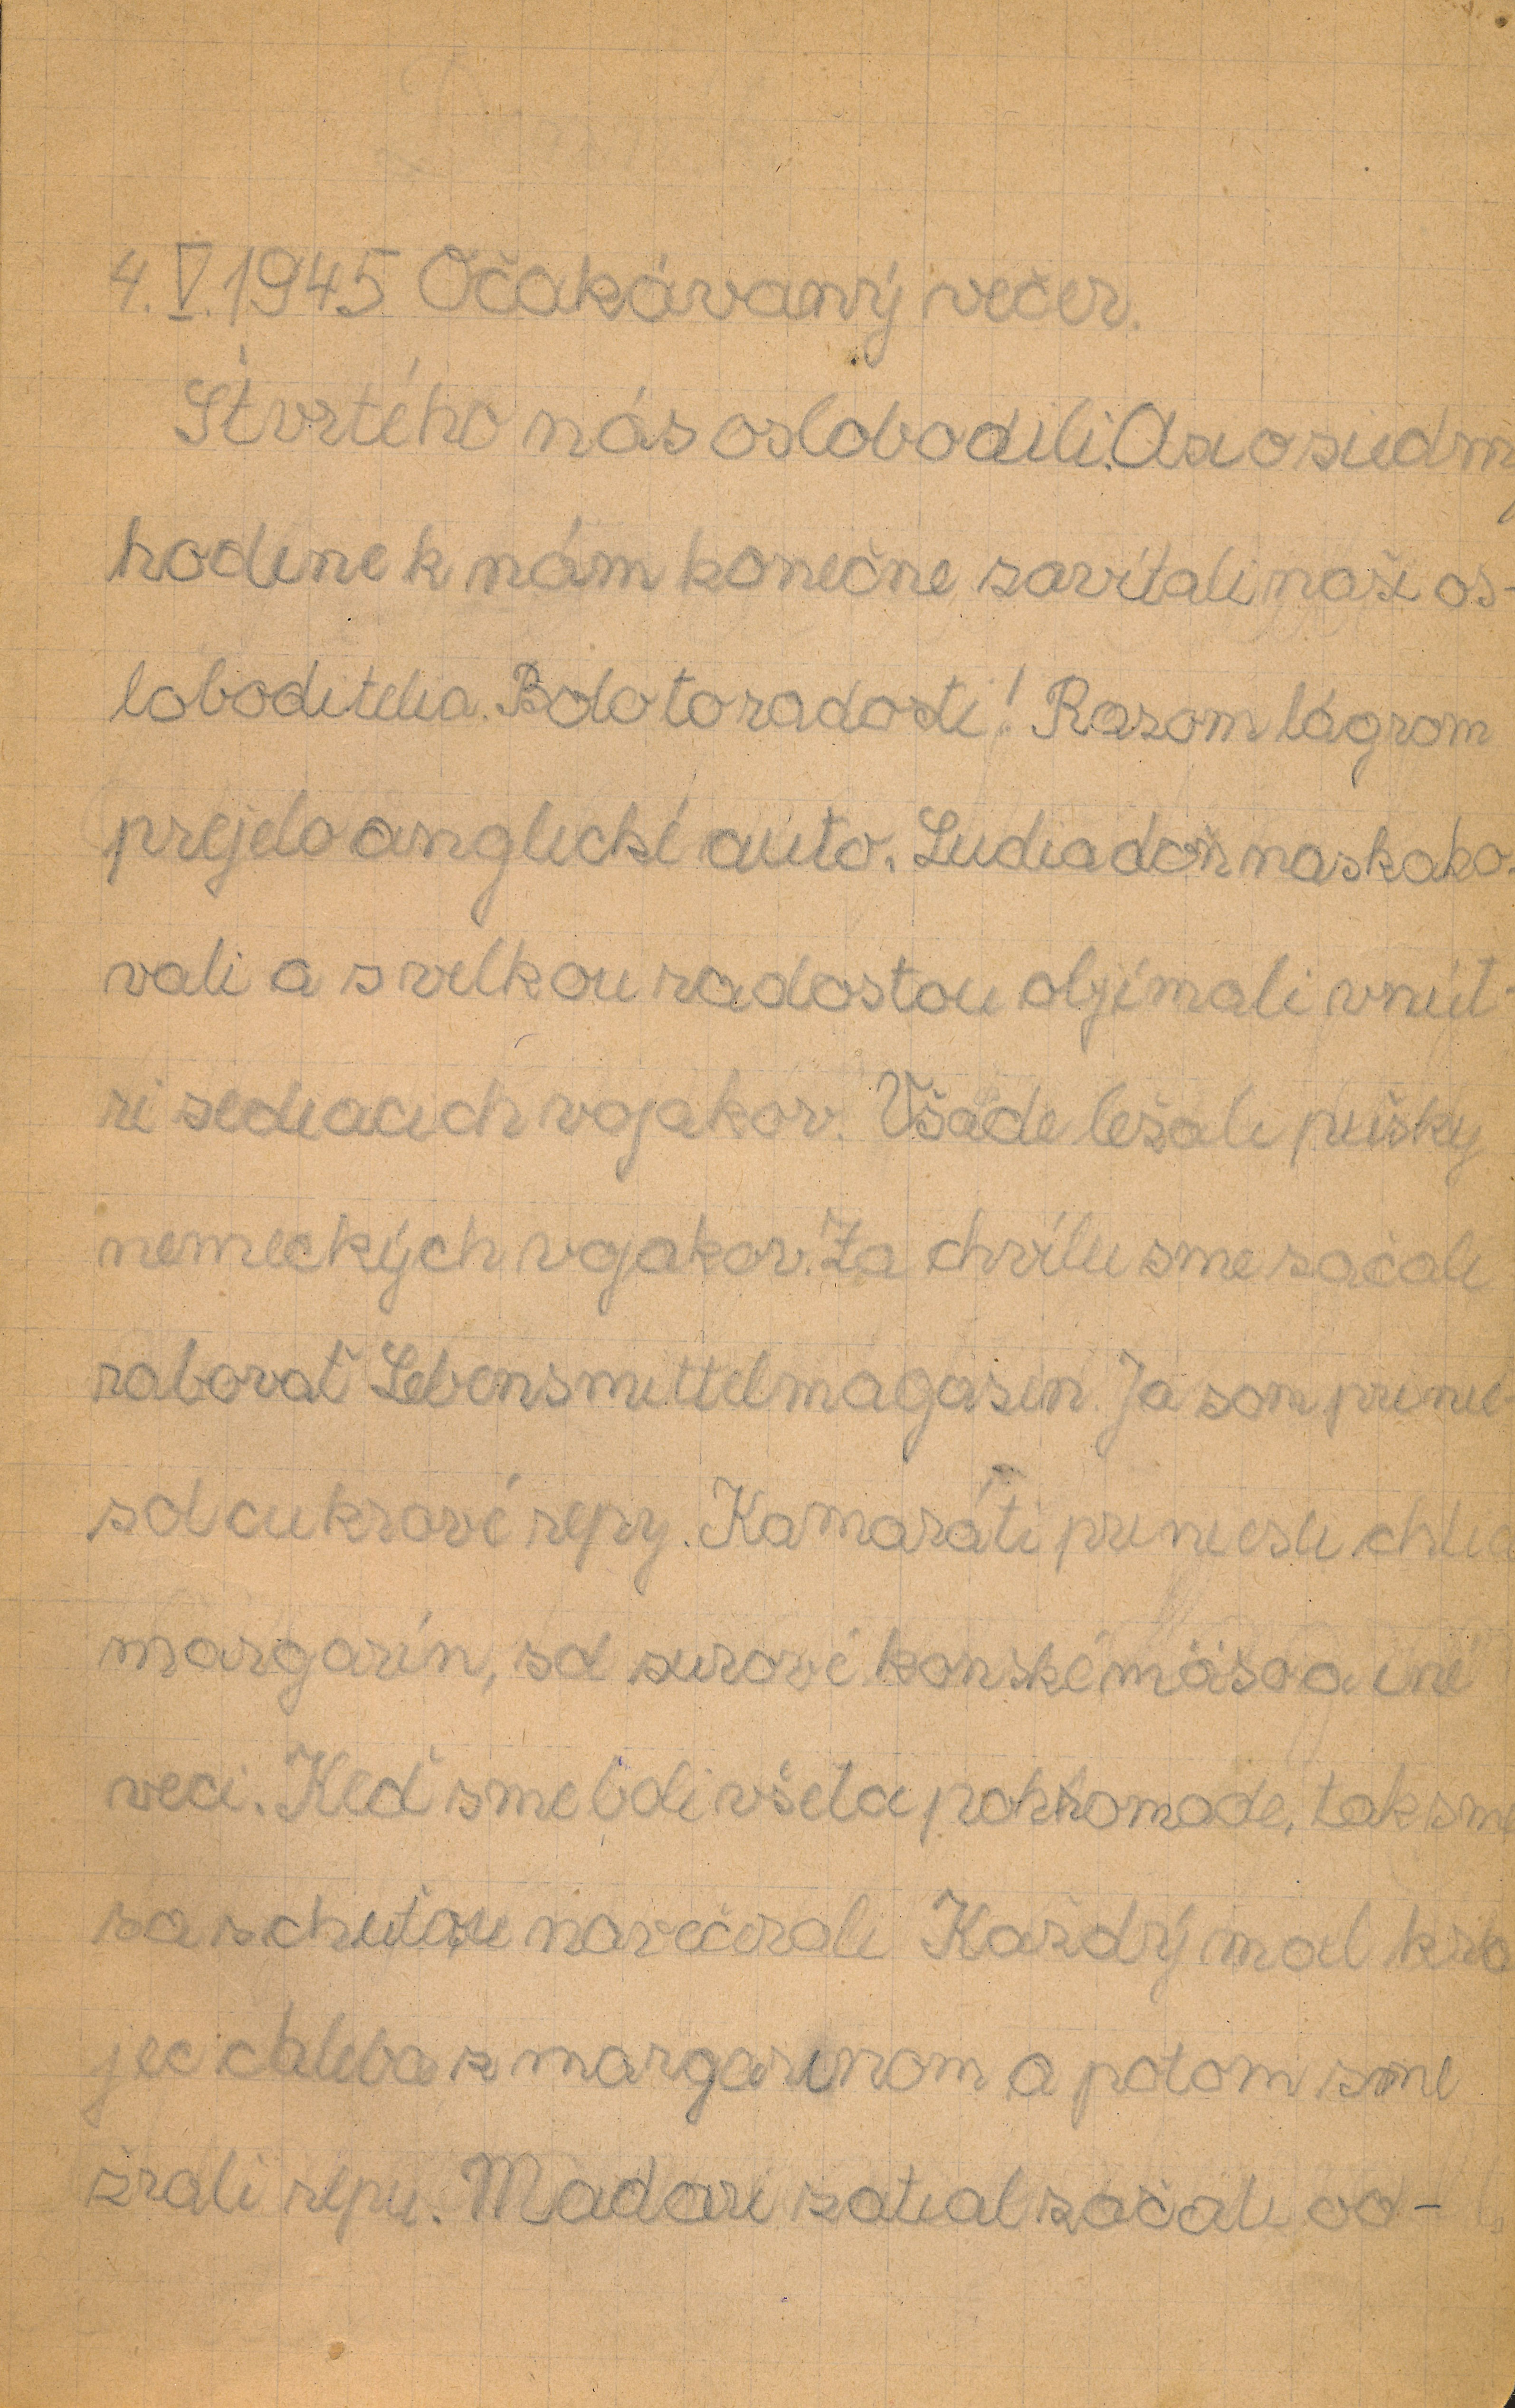 4.V.1945 Očakávaný večer.
Štvrtého nás oslobodili. Asi o siedmy
hodine k nám konečne zavítali naši os-
loboditelia. Bolo to radosti! Razom lágrom
prejelo anglické auto. Ludia doň naskako-
vali a s velkou radostou objímali vnút-
ri sediacich vojakov. Všade ležali pušky
nemeckých vojakov. Za chvílu sme začali
rabovať Lebensmittelmagazin. Ja som prinie-
sol cukrové repy. Kamaráti priniesli chlia
margarín, sol surové konské mäso a iné
veci. Keď sme boli všetci pohromade, tak sme
sa s chuťou navečerali Každý mal kra
jec chleba z margarinom a potom sme
žrali repu. Madari zatial začali od-